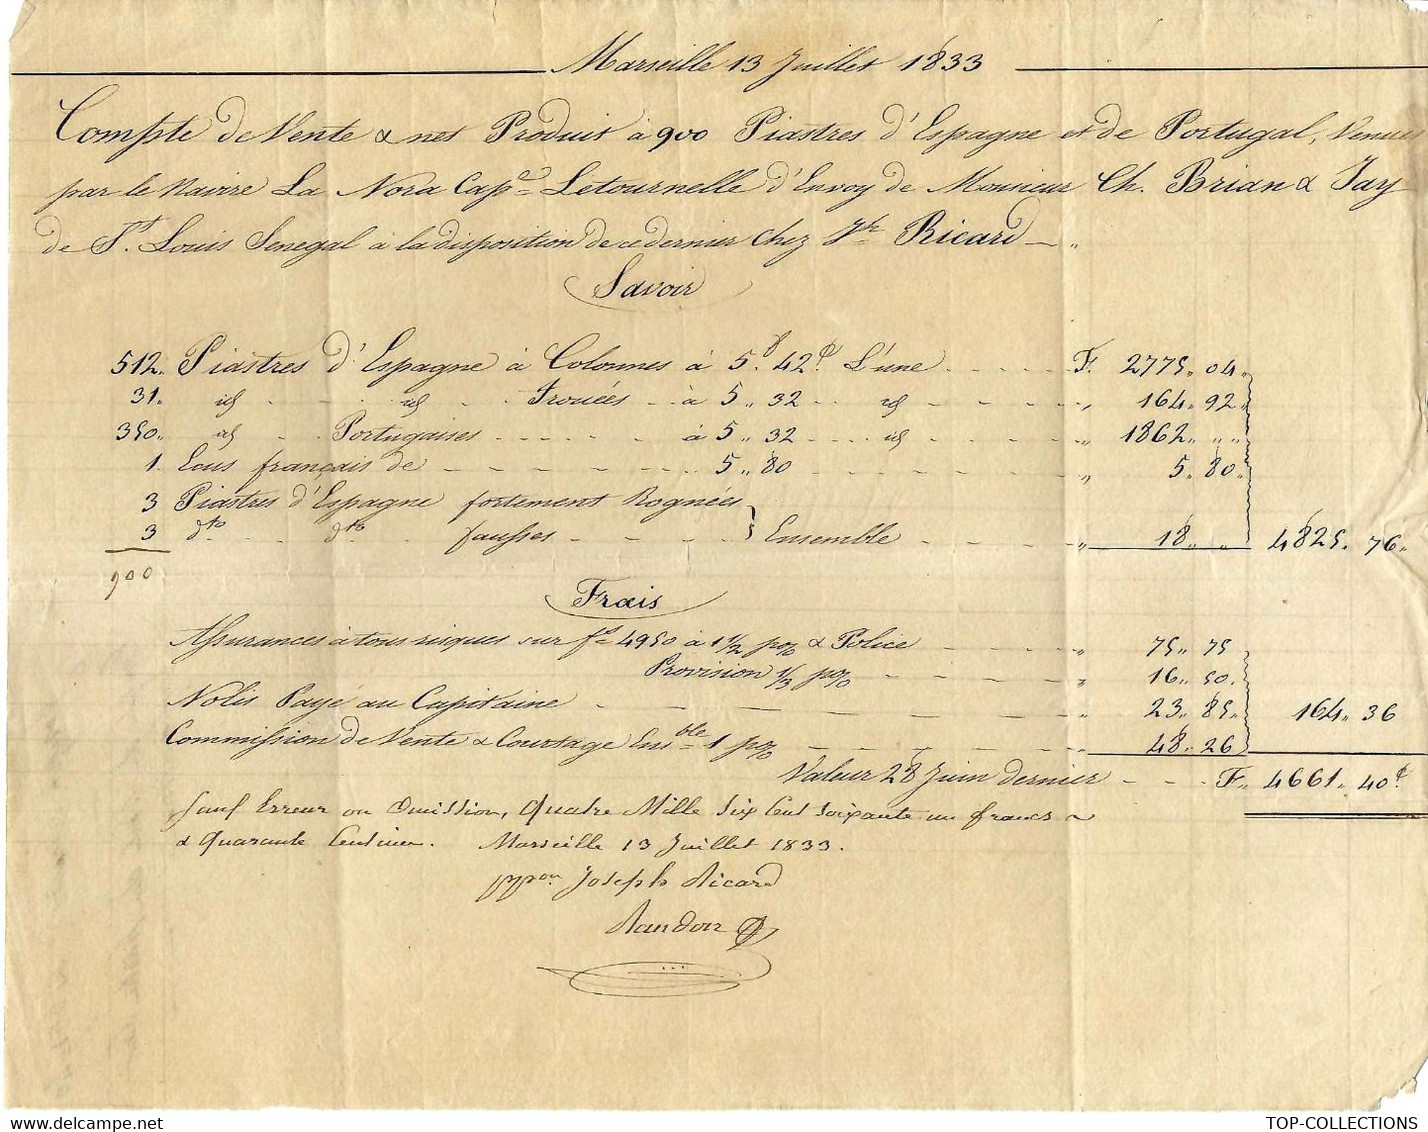 Marseille 13 Juillet 1833
Compte de Vente & net Produit à 900 Piastres d'Espagne et de Portugal, Venues
par le Navire La Nora Cap.ne Letournelle d'Envoy de Monsieur Ch. Brian & Jay
de St. Louis Senegal à la disposition de ce dernier Chez Jh. Ricard
Savoir
512. Piastres d'Espagne à Colonnes à 5 f. 42 c. L'une F. 2775. 04.
31. id id Trouées à 5. 32 id 164. 92
350. id Portugaises à 5. 32 id 1862. " "
1. Ecus français de 5. 80 5. 80
3 Piastres d'Espagne fortement Rognées
3 dto dto fausses } Ensemble 18. " 4825. 76.
900
Frais
Assurances à tous risques sur fs. 4950 à 1 1/2 p% & Police 75. 75
Provision 1/3 p% 16. 50.
Nolis Payé au Capitaine 23. 85. 164. 36
Commission de Vente & Courtage Ens.ble 1 p% 48. 26
Valeur 28 Juin dernier F. 4661. 40 c
Sauf Erreur ou Omission, Quatre Mille Six Cent Soixante un francs
& Quarante Centimes. Marseille 13 Juillet 1833.
pp.on Joseph Ricard
TOP-COLLECTIONS
https://www.delcampe.net